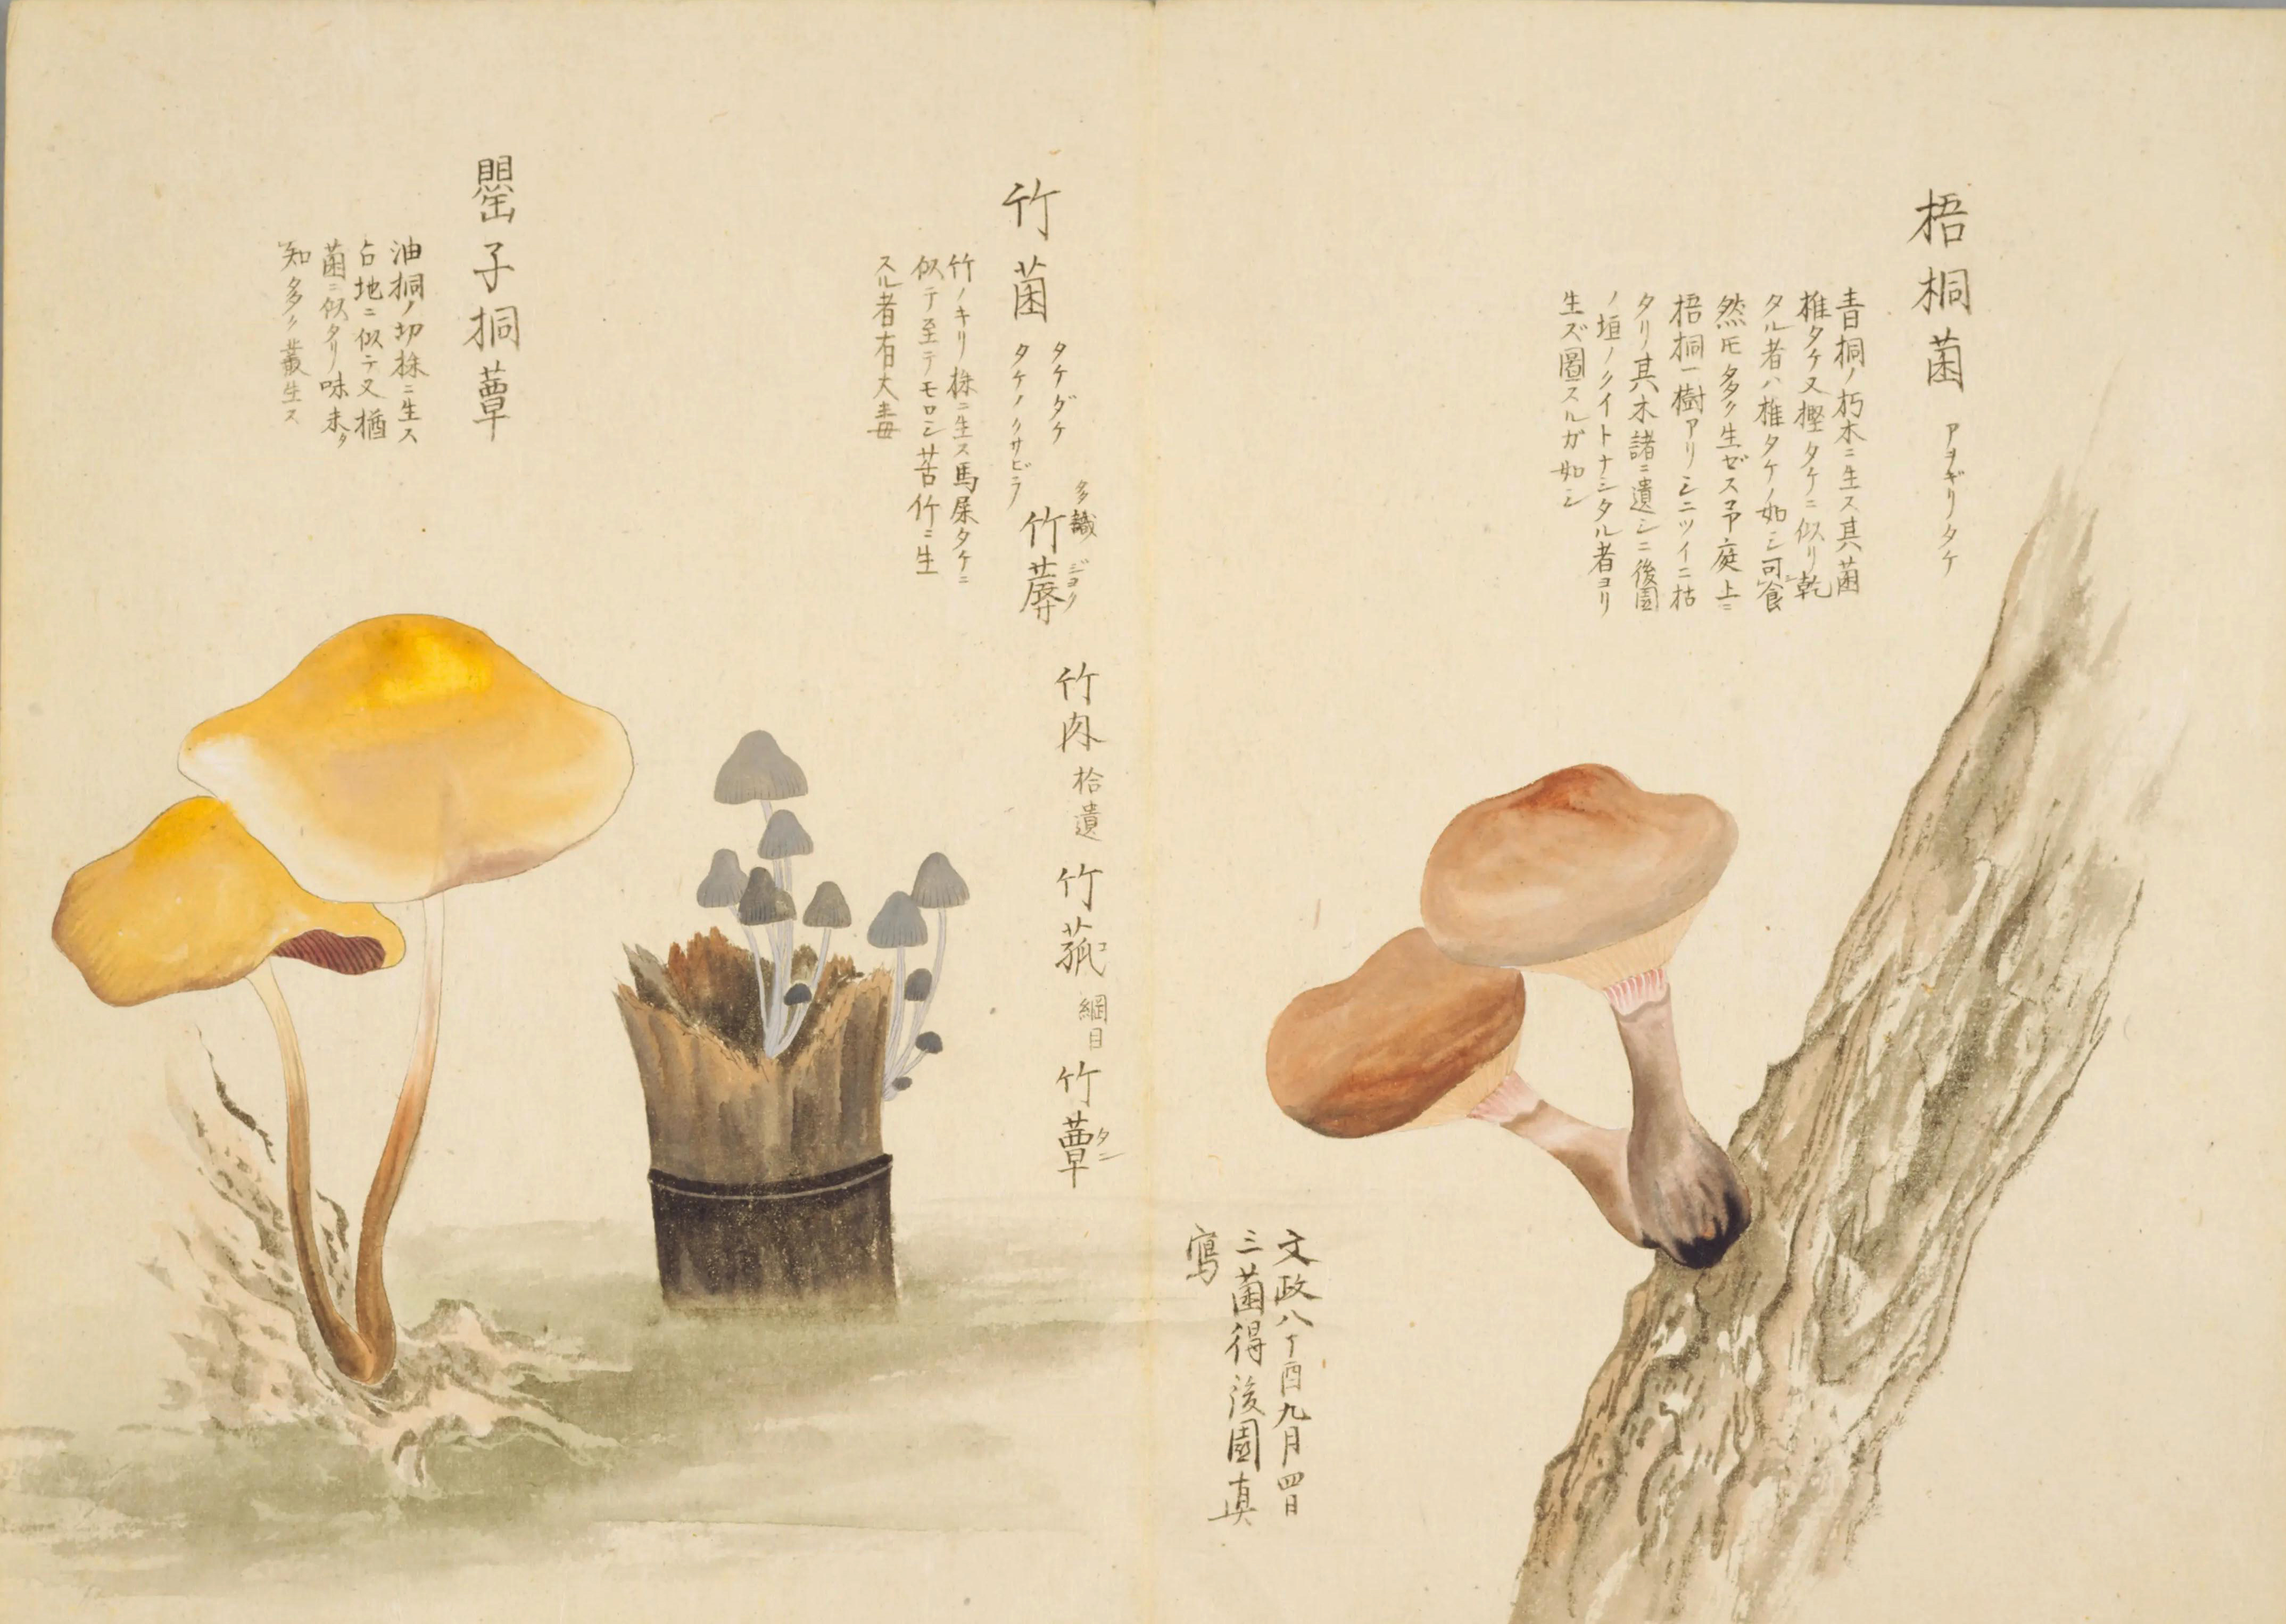 梧桐菌 アヲギリノタケ
青桐ノ朽木ニ生ス其菌
椎タケ又樫タケニ似リ乾
タル者ハ椎タケノ如シ可食
然𪜈多ク生ゼス予庭上ニ
梧桐一樹アリシニツイニ枯
タリ其木諸ニ遺シニ後園
ノ垣ノクイトナシタル者ヨリ
生ズ圖スルガ如シ
文政八丁酉九月四日
三菌得後園真
寫
竹菌 タケダケ タケノクサビラ
多識 竹蓐 ジヨク
竹肉 拾遺 竹菰 コ 綱目 竹蕈 タン
竹ノキリ株ニ生ス馬屎タケニ
似テ至テモロシ苦竹ニ生
スル者有大毒
罌子桐蕈
油桐ノ切株ニ生ス
占地ニ似テ又楢
菌ニ似タリ味未タ
知多ク叢生ス